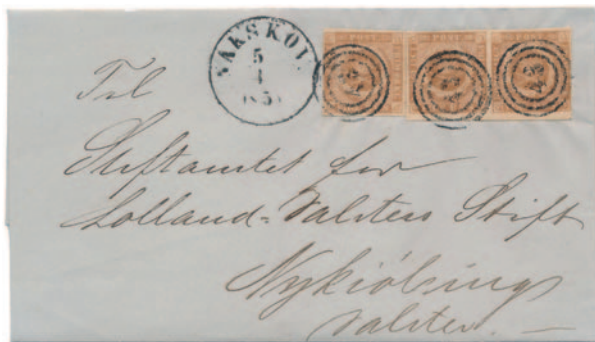 NAKSKOV.
5
Til
Stiftamtet for
Lolland-Falsters Stift
Nykiöbing
Falster.